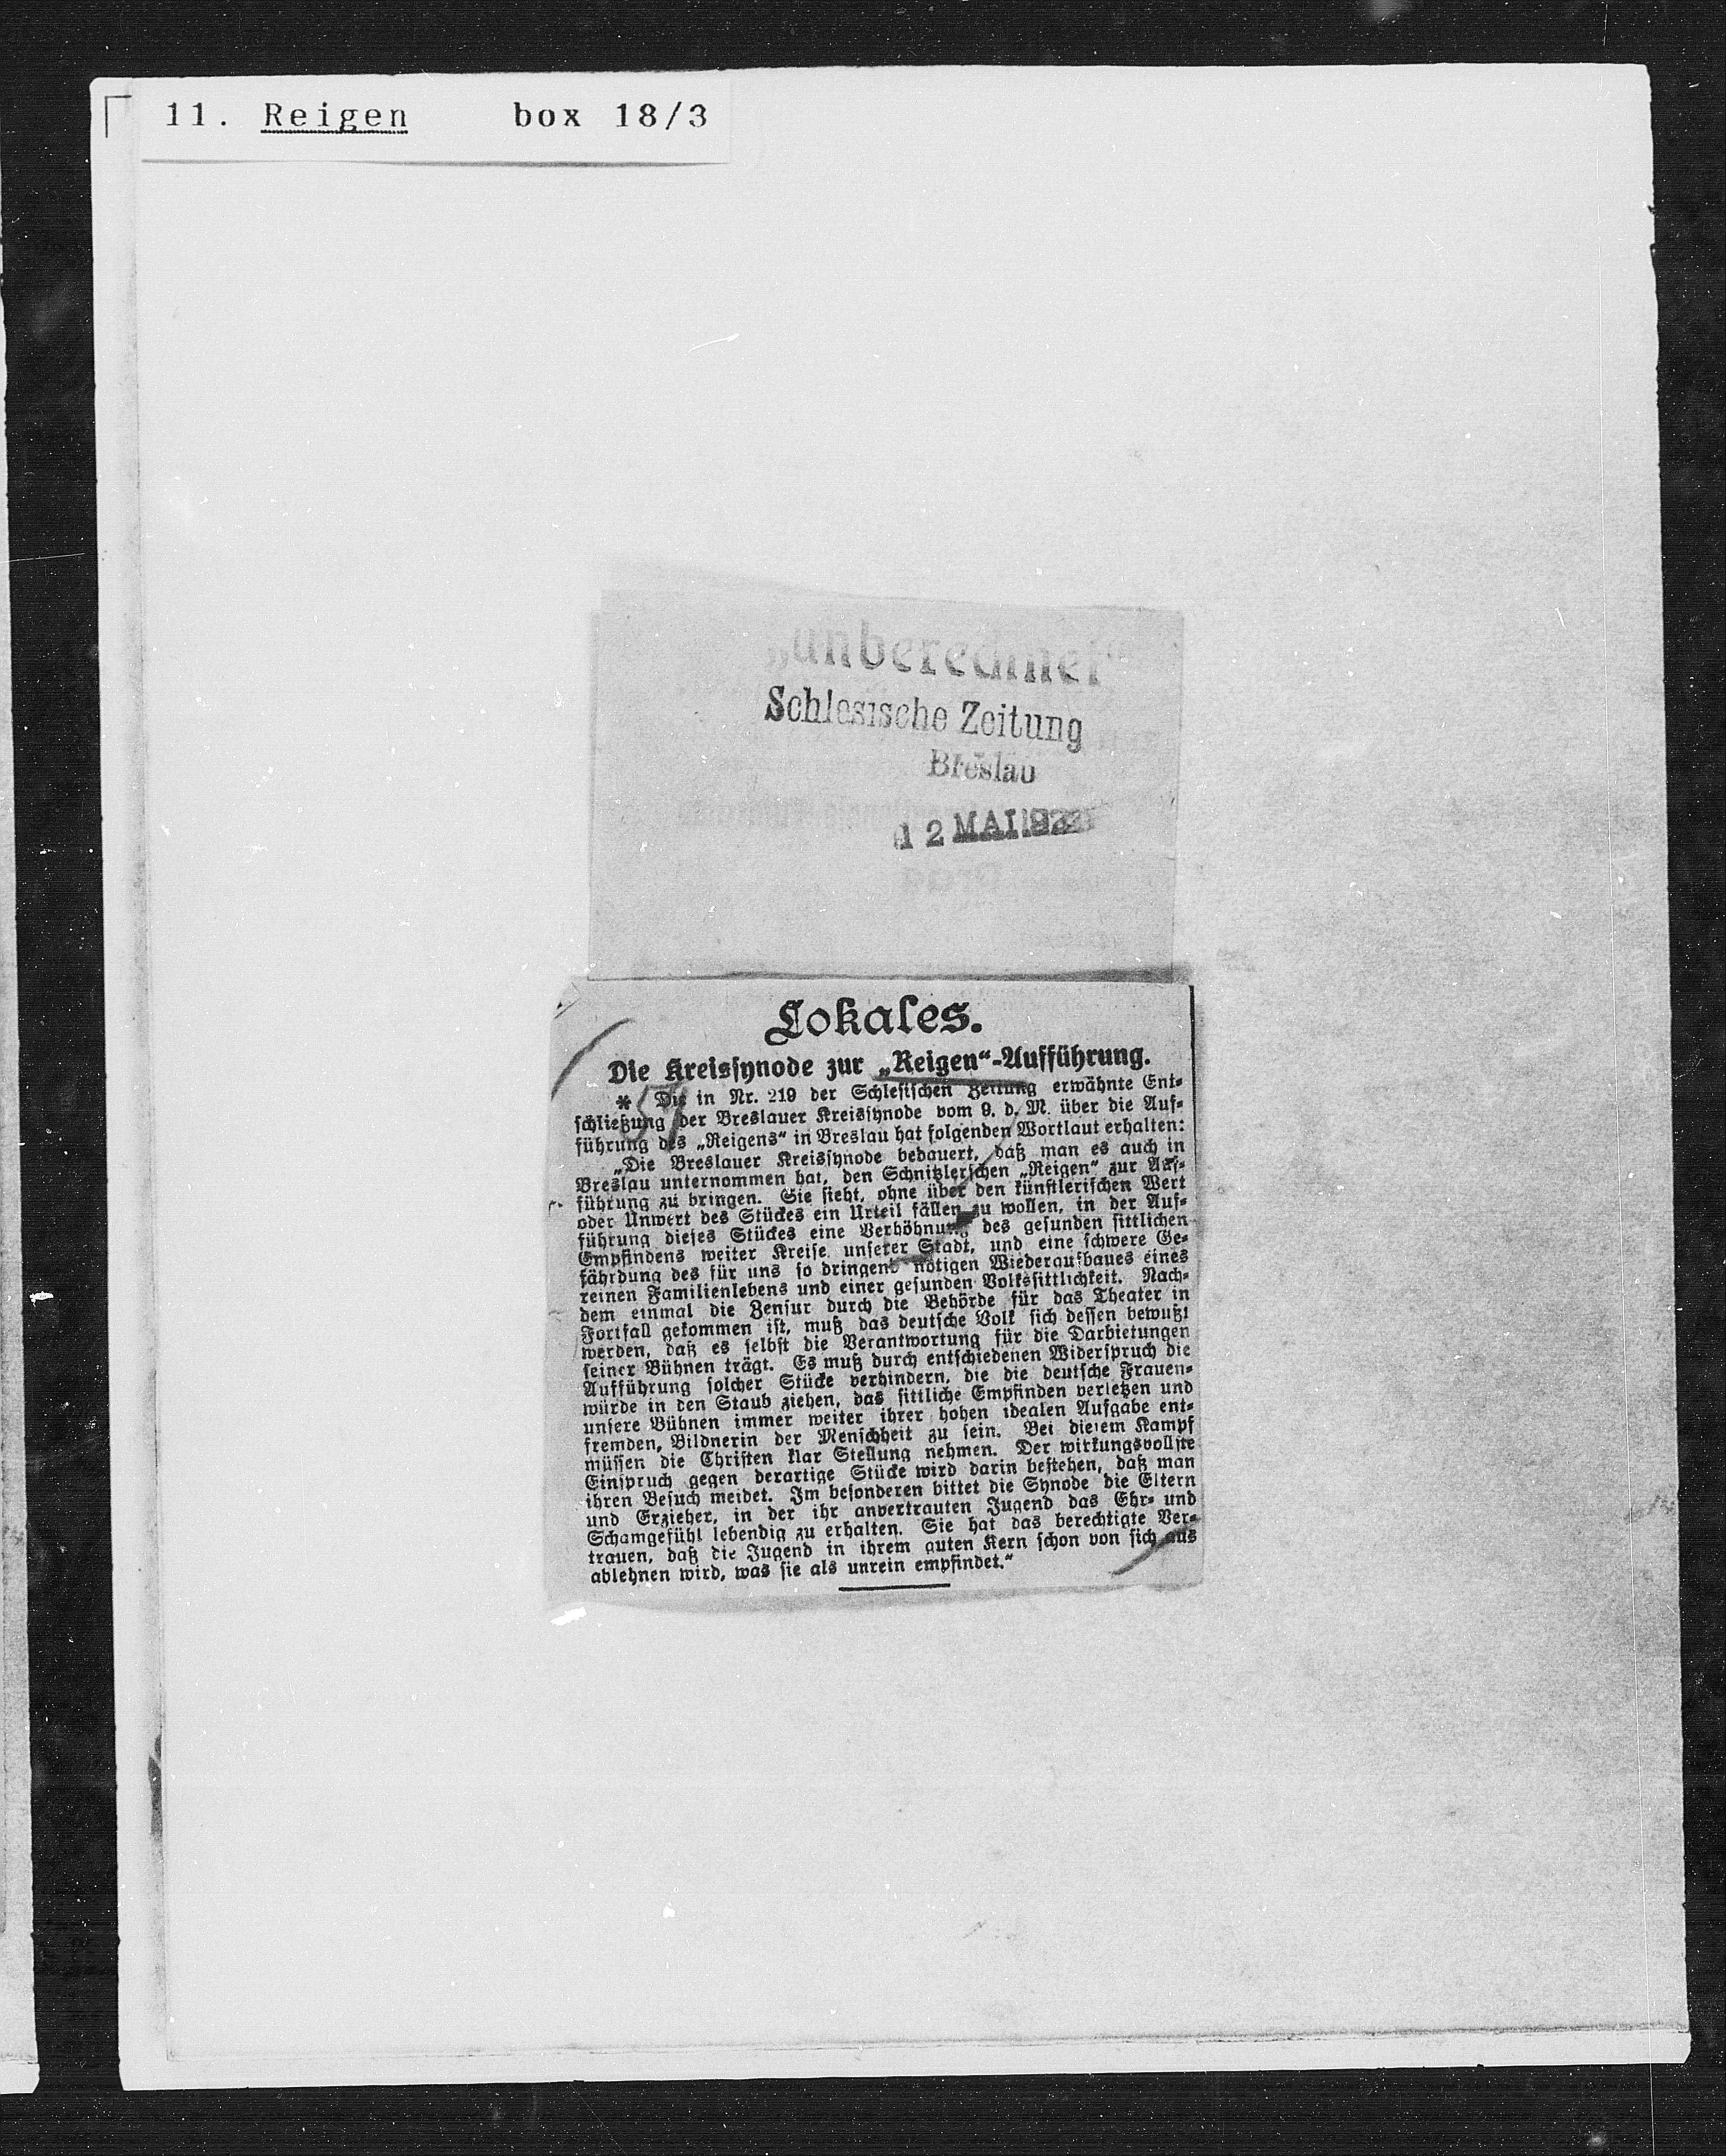 11. Reigen box 18/3
„unberechnet“
Schlesische Zeitung
Breslau
12 MAI
Lokales.
Die Kreissynode zur „Reigen“-Aufführung.
* Die in Nr. 219 der Schlesischen Zeitung erwähnte Ent-
schließung der Breslauer Kreissynode vom 9. d. M. über die Auf-
führung des „Reigens“ in Breslau hat folgenden Wortlaut erhalten:
„Die Breslauer Kreissynode bedauert, daß man es auch in
Breslau unternommen hat, den Schnitzlerschen „Reigen“ zur Auf-
führung zu bringen. Sie sieht, ohne über den künstlerischen Wert
oder Unwert des Stückes ein Urteil fällen zu wollen, in der Auf-
führung dieses Stückes eine Verhöhnung des gesunden sittlichen
Empfindens weiter Kreise unserer Stadt, und eine schwere Ge-
fährdung des für uns so dringend nötigen Wiederaufbaues eines
reinen Familienlebens und einer gesunden Volkssittlichkeit. Nach-
dem einmal die Zensur durch die Behörde für das Theater in
Fortfall gekommen ist, muß das deutsche Volk sich dessen bewußt
werden, daß es selbst die Verantwortung für die Darbietungen
seiner Bühnen trägt. Es muß durch entschiedenen Widerspruch die
Aufführung solcher Stücke verhindern, die die deutsche Frauen-
würde in den Staub ziehen, das sittliche Empfinden verletzen und
unsere Bühnen immer weiter ihrer hohen idealen Aufgabe ent-
fremden, Bildnerin der Menschheit zu sein. Bei diesem Kampf
müssen die Christen klar Stellung nehmen. Der wirkungsvollste
Einspruch gegen derartige Stücke wird darin bestehen, daß man
ihren Besuch meidet. Im besonderen bittet die Synode die Eltern
und Erzieher, in der ihr anvertrauten Jugend das Ehr- und
Schamgefühl lebendig zu erhalten. Sie hat das berechtigte Ver-
trauen, daß die Jugend in ihrem guten Kern schon von sich aus
ablehnen wird, was sie als unrein empfindet.“